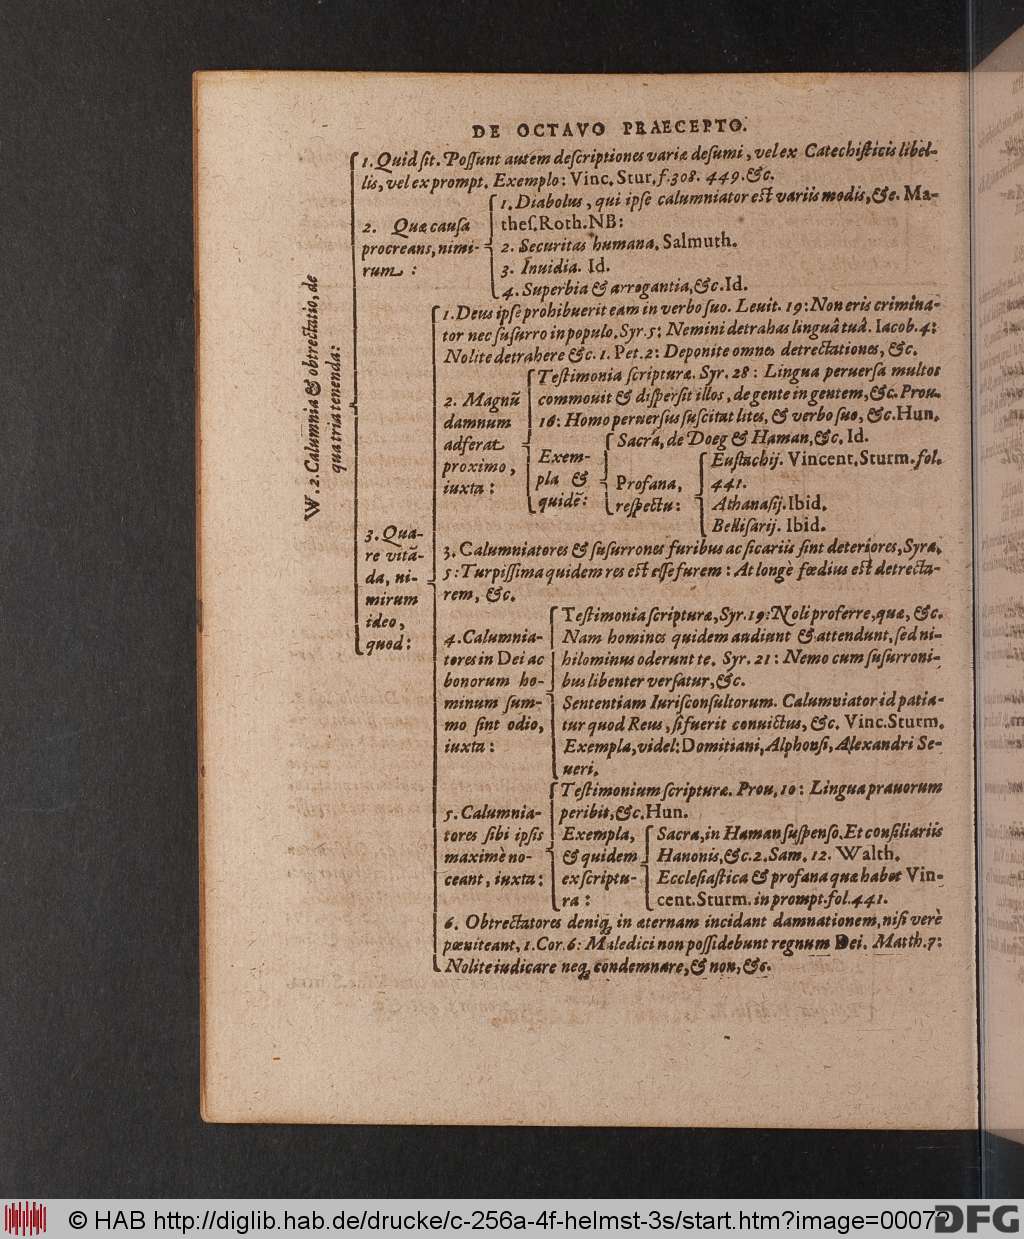 DE OCTAVO PRAECEPTO.
W. 2. Calumnia & obtrectatio, de
qua tria tenenda:
1. Quid ſit. Poſſunt autem deſcriptiones variæ deſumi, vel ex Catechiſticis libel-
lis, vel ex prompt. Exemplo: Vinc. Stur. f. 308. 449. &c.
2. Quæ cauſa
procreans, nimi-
rum:
1. Diabolus, qui ipſe calumniator eſt variis modis, &c. Ma-
theſ. Roth. NB:
2. Securitas humana. Salmuth.
3. Inuidia. Id.
4. Superbia & arrogantia, &c. Id.
3. Qua-
re vitā-
da, ni-
mirum
ideo,
quod:
1. Deus ipſe prohibuerit eam in verbo ſuo. Leuit. 19: Non eris crimina-
tor nec ſuſurro in populo. Syr. 5: Nemini detrahas linguâ tuâ. Iacob. 4:
Nolite detrahere &c. 1. Pet. 2: Deponite omnes detrectationes, &c.
2. Magnū
damnum
adferat
proximo,
iuxta:
Teſtimonia ſcripturæ. Syr. 28: Lingua peruerſa multos
commouit & diſperſit illos, de gente in gentem, &c. Prou.
16: Homo peruerſus ſuſcitat lites, & verboſus, &c. Hun.
Exem-
pla &
quidē:
Sacra, de Doeg & Haman, &c. Id.
Profana,
reſpectu:
Euſtachij. Vincent. Sturm. fol.
441.
Athanaſij. Ibid.
Belliſarij. Ibid.
3. Calumniatores & ſuſurrones furibus ac ſicariis ſint deteriores, Syra.
5: Turpiſſima quidem res eſt eſſe furem: At longè fœdius eſt detrecta-
rem, &c.
4. Calumnia-
tores in Dei ac
bonorum ho-
minum ſum-
mo ſint odio,
iuxta:
Teſtimonia ſcripturæ, Syr. 19: Noli proferre, quæ, &c.
Nam homines quidem audiunt & attendunt, ſed ni-
hilominus oderunt te. Syr. 21: Nemo cum ſuſurroni-
bus libenter verſatur, &c.
Sententiam Iuriſconſultorum. Calumniator id patia-
tur quod Reus, ſi fuerit conuictus, &c. Vinc. Sturm.
Exempla, videl: Domitiani, Alphonſi, Alexandri Se-
ueri.
5. Calumnia-
tores ſibi ipſis
maximè no-
ceant, iuxta:
Teſtimonium ſcripturæ. Prou, 10: Lingua prauorum
peribit, &c. Hun.
Exempla,
& quidem
ex ſcriptu-
ra:
Sacra, in Haman ſuſpenſo. Et conſiliariis
Hanonis, &c. 2. Sam. 12. Walth.
Eccleſiaſtica & profana quæ habet Vin-
cent. Sturm. in prompt. fol. 441.
6. Obtrectatores deniq; in æternam incidant damnationem, niſi verè
pœniteant, 1. Cor. 6: Maledici non poſſidebunt regnum Dei. Matth. 7:
Nolite iudicare neq; condemnare, & non, &c.
© HAB http://diglib.hab.de/drucke/c-256a-4f-helmst-3s/start.htm?image=00072
DFG